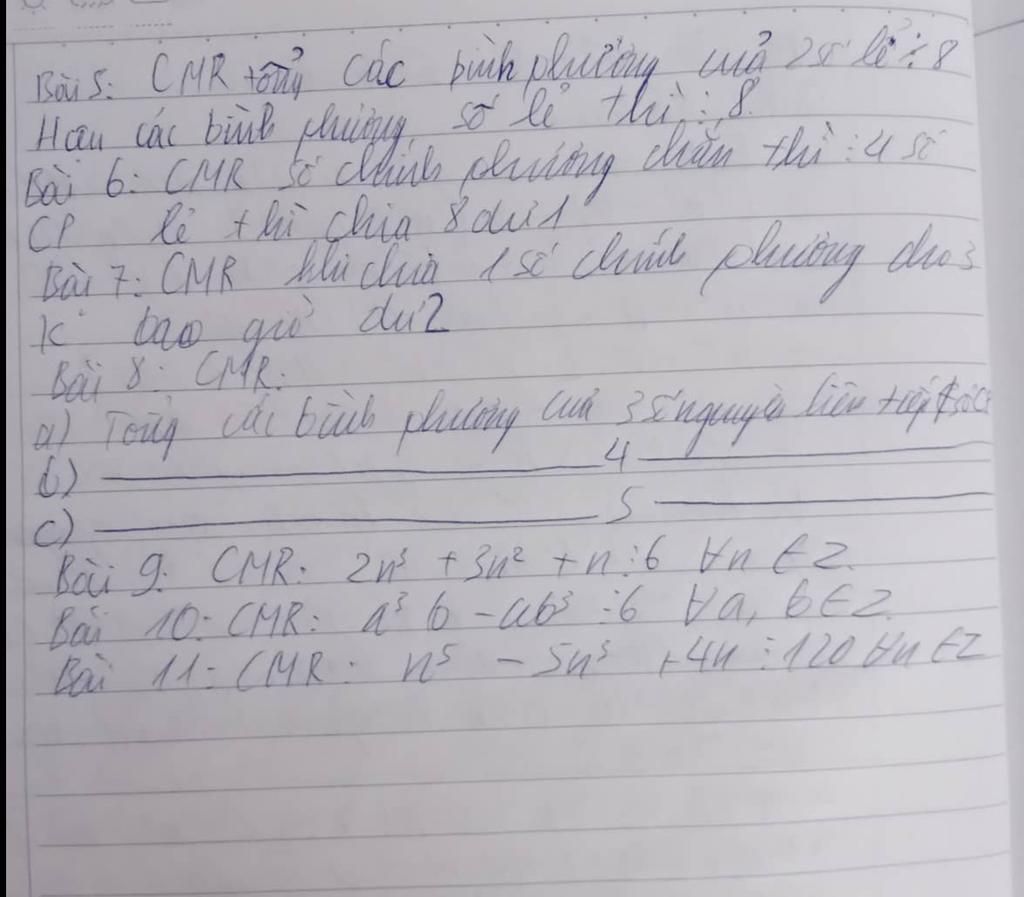 Bài 5: CMR tổng các bình phương của 2 số lẻ ⋮ 8
Hai các bình phương số lẻ thì ⋮ 8
Bài 6: CMR số chính phương chẵn thì ⋮ 4 số
CP lẻ thì chia 8 dư 1
Bài 7: CMR khi chia 1 số chính phương cho 3
K bao giờ dư 2
Bài 8: CMR:
a) Tổng các bình phương của 3 số nguyên liên tiếp
b) ——— 4 ———
c) ——— 5 ———
Bài 9: CMR: 2n³ + 3n² + n ⋮ 6 ∀n ∈ Z.
Bài 10: CMR: a³b - ab³ ⋮ 6 ∀a, b ∈ Z.
Bài 11: CMR: n⁵ - 5n³ + 4n ⋮ 120 ∀n ∈ Z